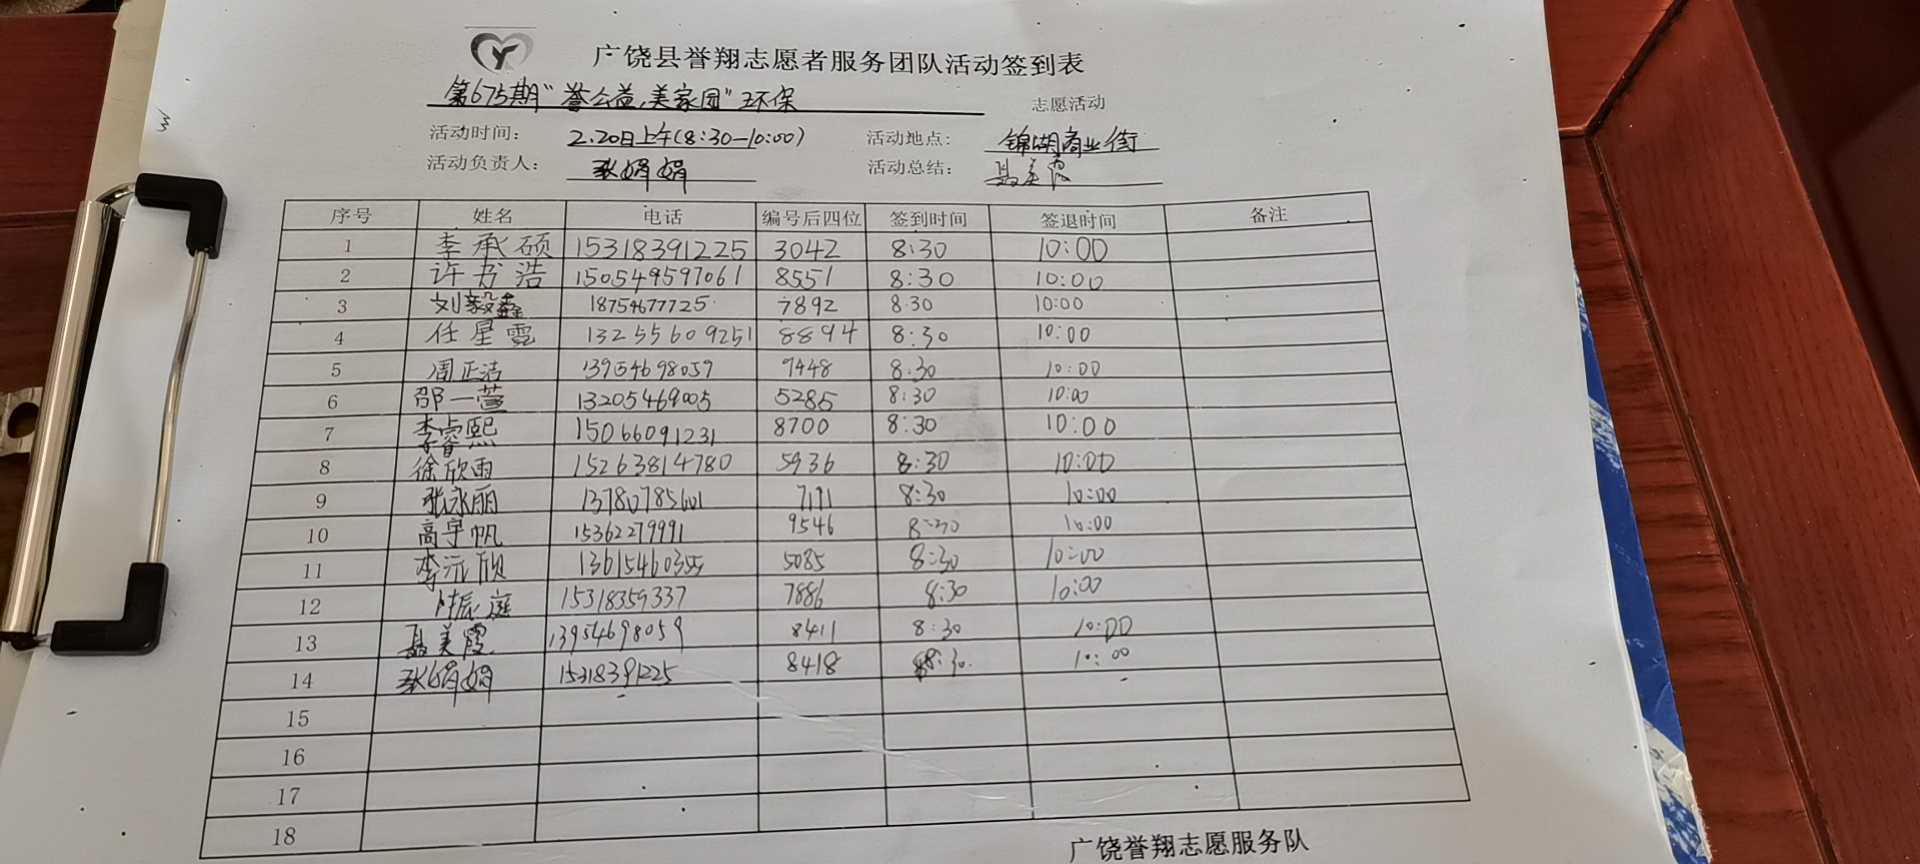 广饶县誉翔志愿者服务团队活动签到表
第675期“誉公益,美家园”环保 志愿活动
活动时间: 2.20日上午(8:30-10:00) 活动地点: 锦湖商业街
活动负责人: 张娟娟 活动总结: 聂美霞
序号 姓名 电话 编号后四位 签到时间 签退时间 备注
1 李承硕 15318391225 3042 8:30 10:00
2 许书浩 150549597061 8551 8:30 10:00
3 刘毅鑫 18754677725 7892 8:30 10:00
4 任星霓 13255609251 8894 8:30 10:00
5 周正洁 13954698059 9448 8:30 10:00
6 邵一萱 13205469005 5285 8:30 10:00
7 李睿熙 15066091231 8700 8:30 10:00
8 徐欣雨 15263814780 5936 8:30 10:00
9 张永丽 13780785601 7171 8:30 10:00
10 高宇帆 15362279991 9546 8:30 10:00
11 李沅颀 13615460355 5085 8:30 10:00
12 振庭 15318359337 7886 8:30 10:00
13 聂美霞 13954698059 8411 8:30 10:00
14 张娟娟 15318391225 8418 8:30. 10:00
15
16
17
18
广饶誉翔志愿服务队